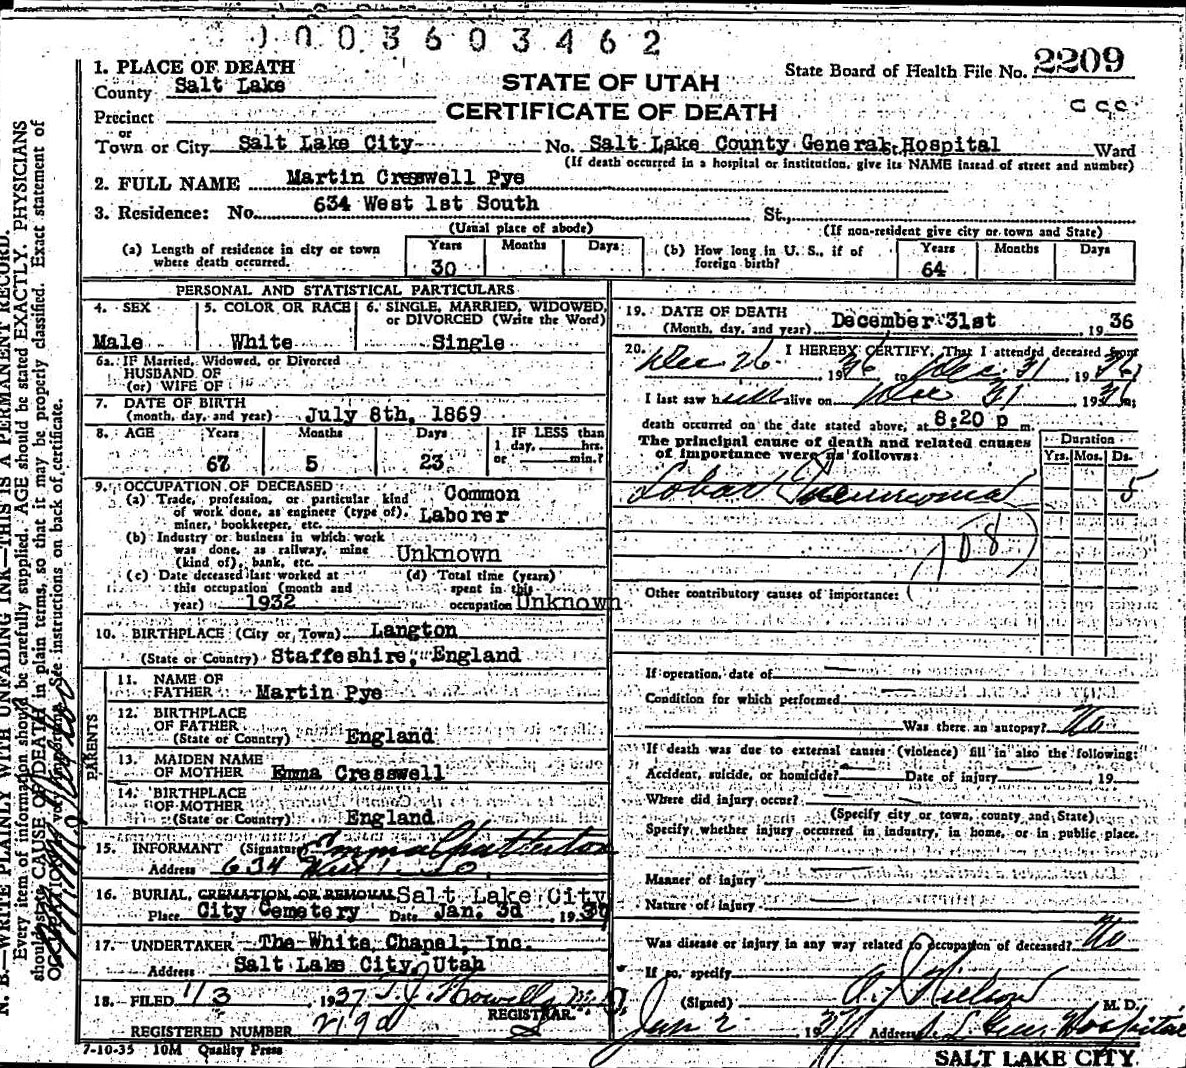 1003603462
State Board of Health File No. 2209
1. PLACE OF DEATH
County Salt Lake
STATE OF UTAH
CERTIFICATE OF DEATH
Precinct
or
Town or City Salt Lake City No. Salt Lake County General Hospital Ward
(If death occurred in a hospital or institution, give its NAME instead of street and number)
2. FULL NAME Martin Cresswell Pye
3. Residence: No. 634 West 1st South St.,
(Usual place of abode) (If non-resident give city or town and State)
(a) Length of residence in city or town where death occurred. Years 30 Months Days
(b) How long in U. S., if of foreign birth? Years 64 Months Days
PERSONAL AND STATISTICAL PARTICULARS
4. SEX Male
5. COLOR OR RACE White
6. SINGLE, MARRIED, WIDOWED, or DIVORCED (Write the Word) Single
6a. IF Married, Widowed, or Divorced
HUSBAND OF
(or) WIFE OF
7. DATE OF BIRTH
(month, day, and year) July 8th, 1869
8. AGE Years 67 Months 5 Days 23 IF LESS than 1 day, hrs. or min.?
9. OCCUPATION OF DECEASED
(a) Trade, profession, or particular kind of work done, as engineer (type of), miner, bookkeeper, etc. Common Laborer
(b) Industry or business in which work was done, as railway, mine (kind of), bank, etc. Unknown
(c) Date deceased last worked at this occupation (month and year) 1932
(d) Total time (years) spent in this occupation Unknown
10. BIRTHPLACE (City or Town) Langton
(State or Country) Staffeshire, England
PARENTS
11. NAME OF FATHER Martin Pye
12. BIRTHPLACE OF FATHER
(State or Country) England
13. MAIDEN NAME OF MOTHER Emma Cresswell
14. BIRTHPLACE OF MOTHER
(State or Country) England
15. INFORMANT (Signature) Emma Chatterton
Address 634 West 1 So.
16. BURIAL, CREMATION OR REMOVAL Salt Lake City
Place City Cemetery Date Jan. 3d 1937
17. UNDERTAKER The White Chapel, Inc.
Address Salt Lake City, Utah
18. FILED 1/3, 1937 T. J. Howells M.D.
REGISTRAR.
REGISTERED NUMBER 2190
7-10-35 10M Quality Press
19. DATE OF DEATH
(Month, day, and year) December 31st, 1936
20. I HEREBY CERTIFY, That I attended deceased from
Dec 26 1936 to Dec. 31 1936
I last saw him alive on Dec 31 1936;
death occurred on the date stated above, at 8:20 p m.
The principal cause of death and related causes of importance were as follows:
Duration
Yrs. Mos. Ds.
Lobar Pneumonia 5
(108)
Other contributory causes of importance:
If operation, date of
Condition for which performed
Was there an autopsy? No
If death was due to external causes (violence) fill in also the following:
Accident, suicide, or homicide? Date of injury 19
Where did injury occur?
(Specify city or town, county and State)
Specify whether injury occurred in industry, in home, or in public place.
Manner of injury
Nature of injury
Was disease or injury in any way related to occupation of deceased? No
If so, specify
(Signed) A. J. Nielson M. D.
Jan 2 1937 Address S. L. Gen Hospital
SALT LAKE CITY.
N. B.—WRITE PLAINLY WITH UNFADING INK—THIS IS A PERMANENT RECORD.
Every item of information should be carefully supplied. AGE should be stated EXACTLY. PHYSICIANS
should state CAUSE OF DEATH in plain terms, so that it may be properly classified. Exact statement of
OCCUPATION is very important. See instructions on back of certificate.